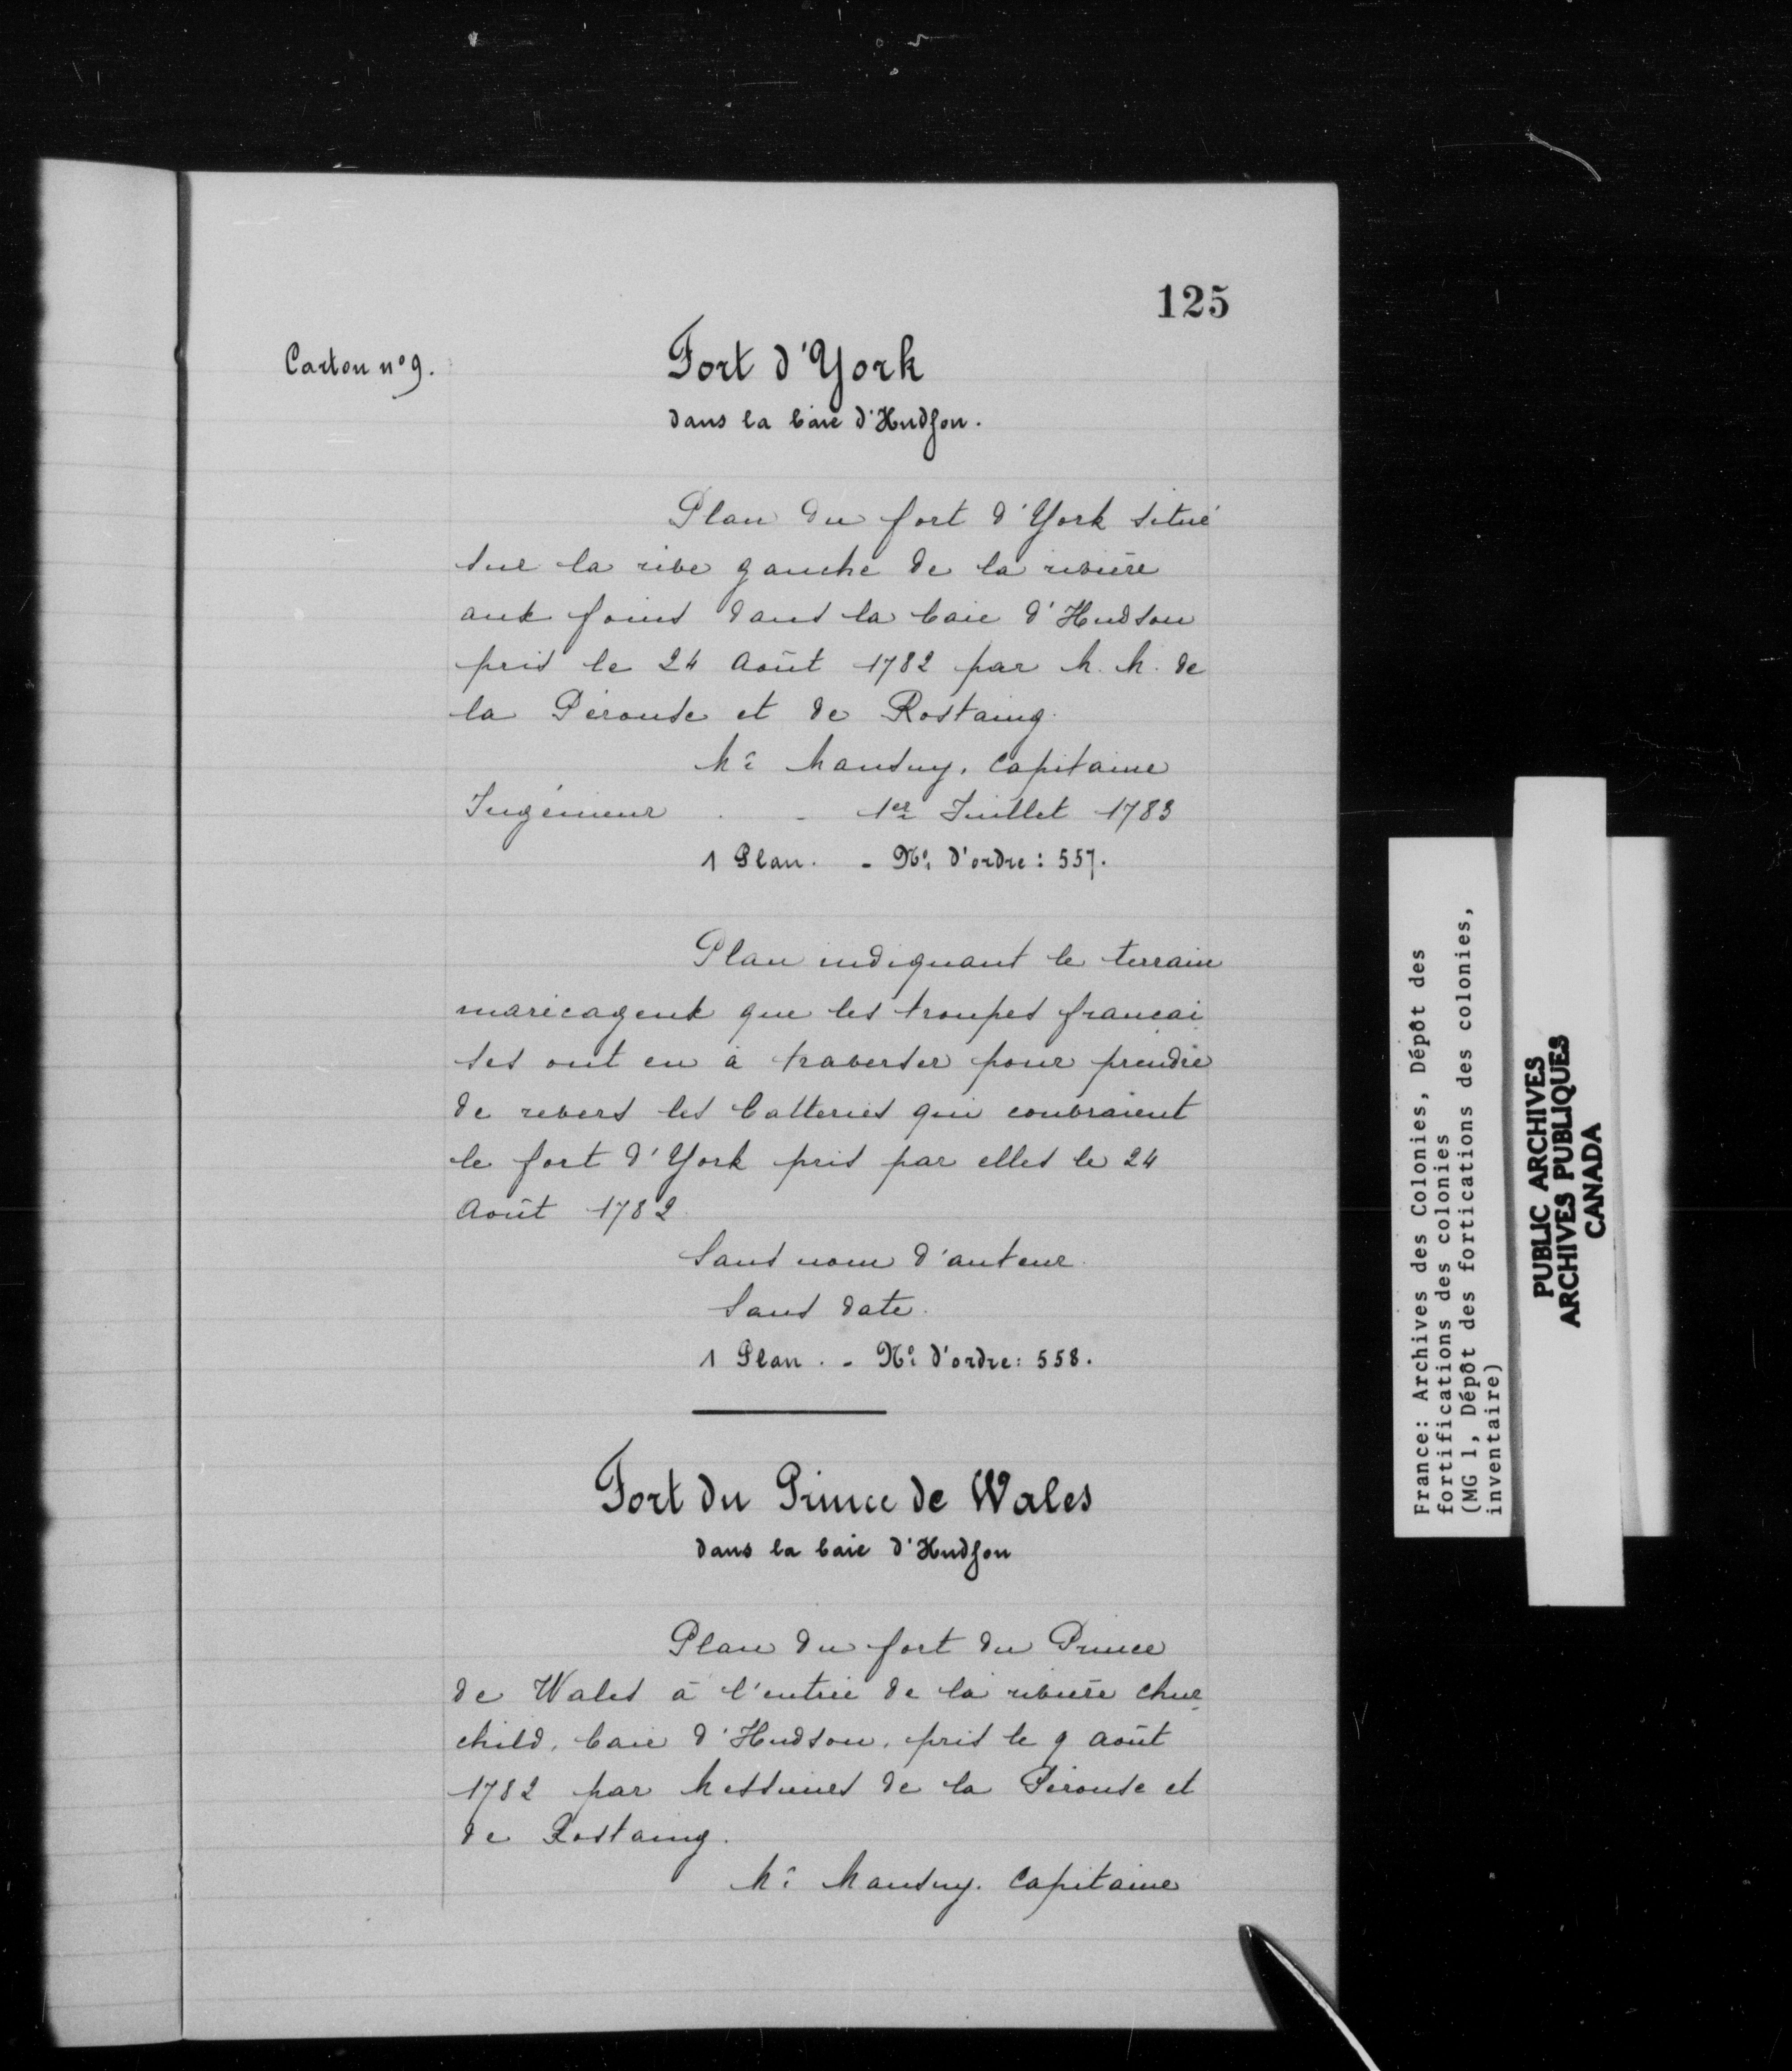 125
Carton n° 9.
Fort d'York
dans la baie d'Hudson.
Plan du fort d'York situé
sur la rive gauche de la rivière
aux foins dans la baie d'Hudson
pris le 24 Août 1782 par M. M. de
la Pérouse et de Rostaing.
Mr Mansuy, Capitaine
Ingénieur . - 1er Juillet 1783
1 Plan. - No d'ordre : 557.
Plan indiquant le terrain
marécageux que les troupes françai
ses ont eu à traverser pour prendre
de revers les batteries qui couvraient
le fort d'York pris par elles le 24
Août 1782.
Sans nom d'auteur.
Sans date.
1 Plan. - No d'ordre : 558.
Fort du Prince de Wales
dans la baie d'Hudson
Plan du fort du Prince
de Wales à l'entrée de la rivière Chur-
child, baie d'Hudson, pris le 9 Août
1782 par Messieurs de la Pérouse et
de Rostaing.
Mr Mansuy. Capitaine
France: Archives des Colonies, Dépôt des
fortifications des colonies
(MG 1, Dépôt des fortications des colonies,
inventaire)
PUBLIC ARCHIVES
ARCHIVES PUBLIQUES
CANADA